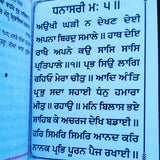 ਧਨਾਸਰੀ ਮਃ ੫ ॥
ਅਉਖੀ ਘੜੀ ਨ ਦੇਖਣ ਦੇਈ
ਅਪਨਾ ਬਿਰਦੁ ਸਮਾਲੇ ॥ ਹਾਥ ਦੇਇ
ਰਾਖੈ ਅਪਨੇ ਕਉ ਸਾਸਿ ਸਾਸਿ
ਪ੍ਰਤਿਪਾਲੇ ॥੧॥ ਪ੍ਰਭ ਸਿਉ ਲਾਗਿ
ਰਹਿਓ ਮੇਰਾ ਚੀਤੁ ॥ ਆਦਿ ਅੰਤਿ
ਪ੍ਰਭੁ ਸਦਾ ਸਹਾਈ ਧੰਨੁ ਹਮਾਰਾ
ਮੀਤੁ ॥ ਰਹਾਉ ॥ ਮਨਿ ਬਿਲਾਸ ਭਏ
ਸਾਹਿਬ ਕੇ ਅਚਰਜ ਦੇਖਿ ਬਡਾਈ ॥
ਹਰਿ ਸਿਮਰਿ ਸਿਮਰਿ ਆਨਦ ਕਰਿ
ਨਾਨਕ ਪ੍ਰਭਿ ਪੂਰਨ ਪੈਜ ਰਖਾਈ ॥